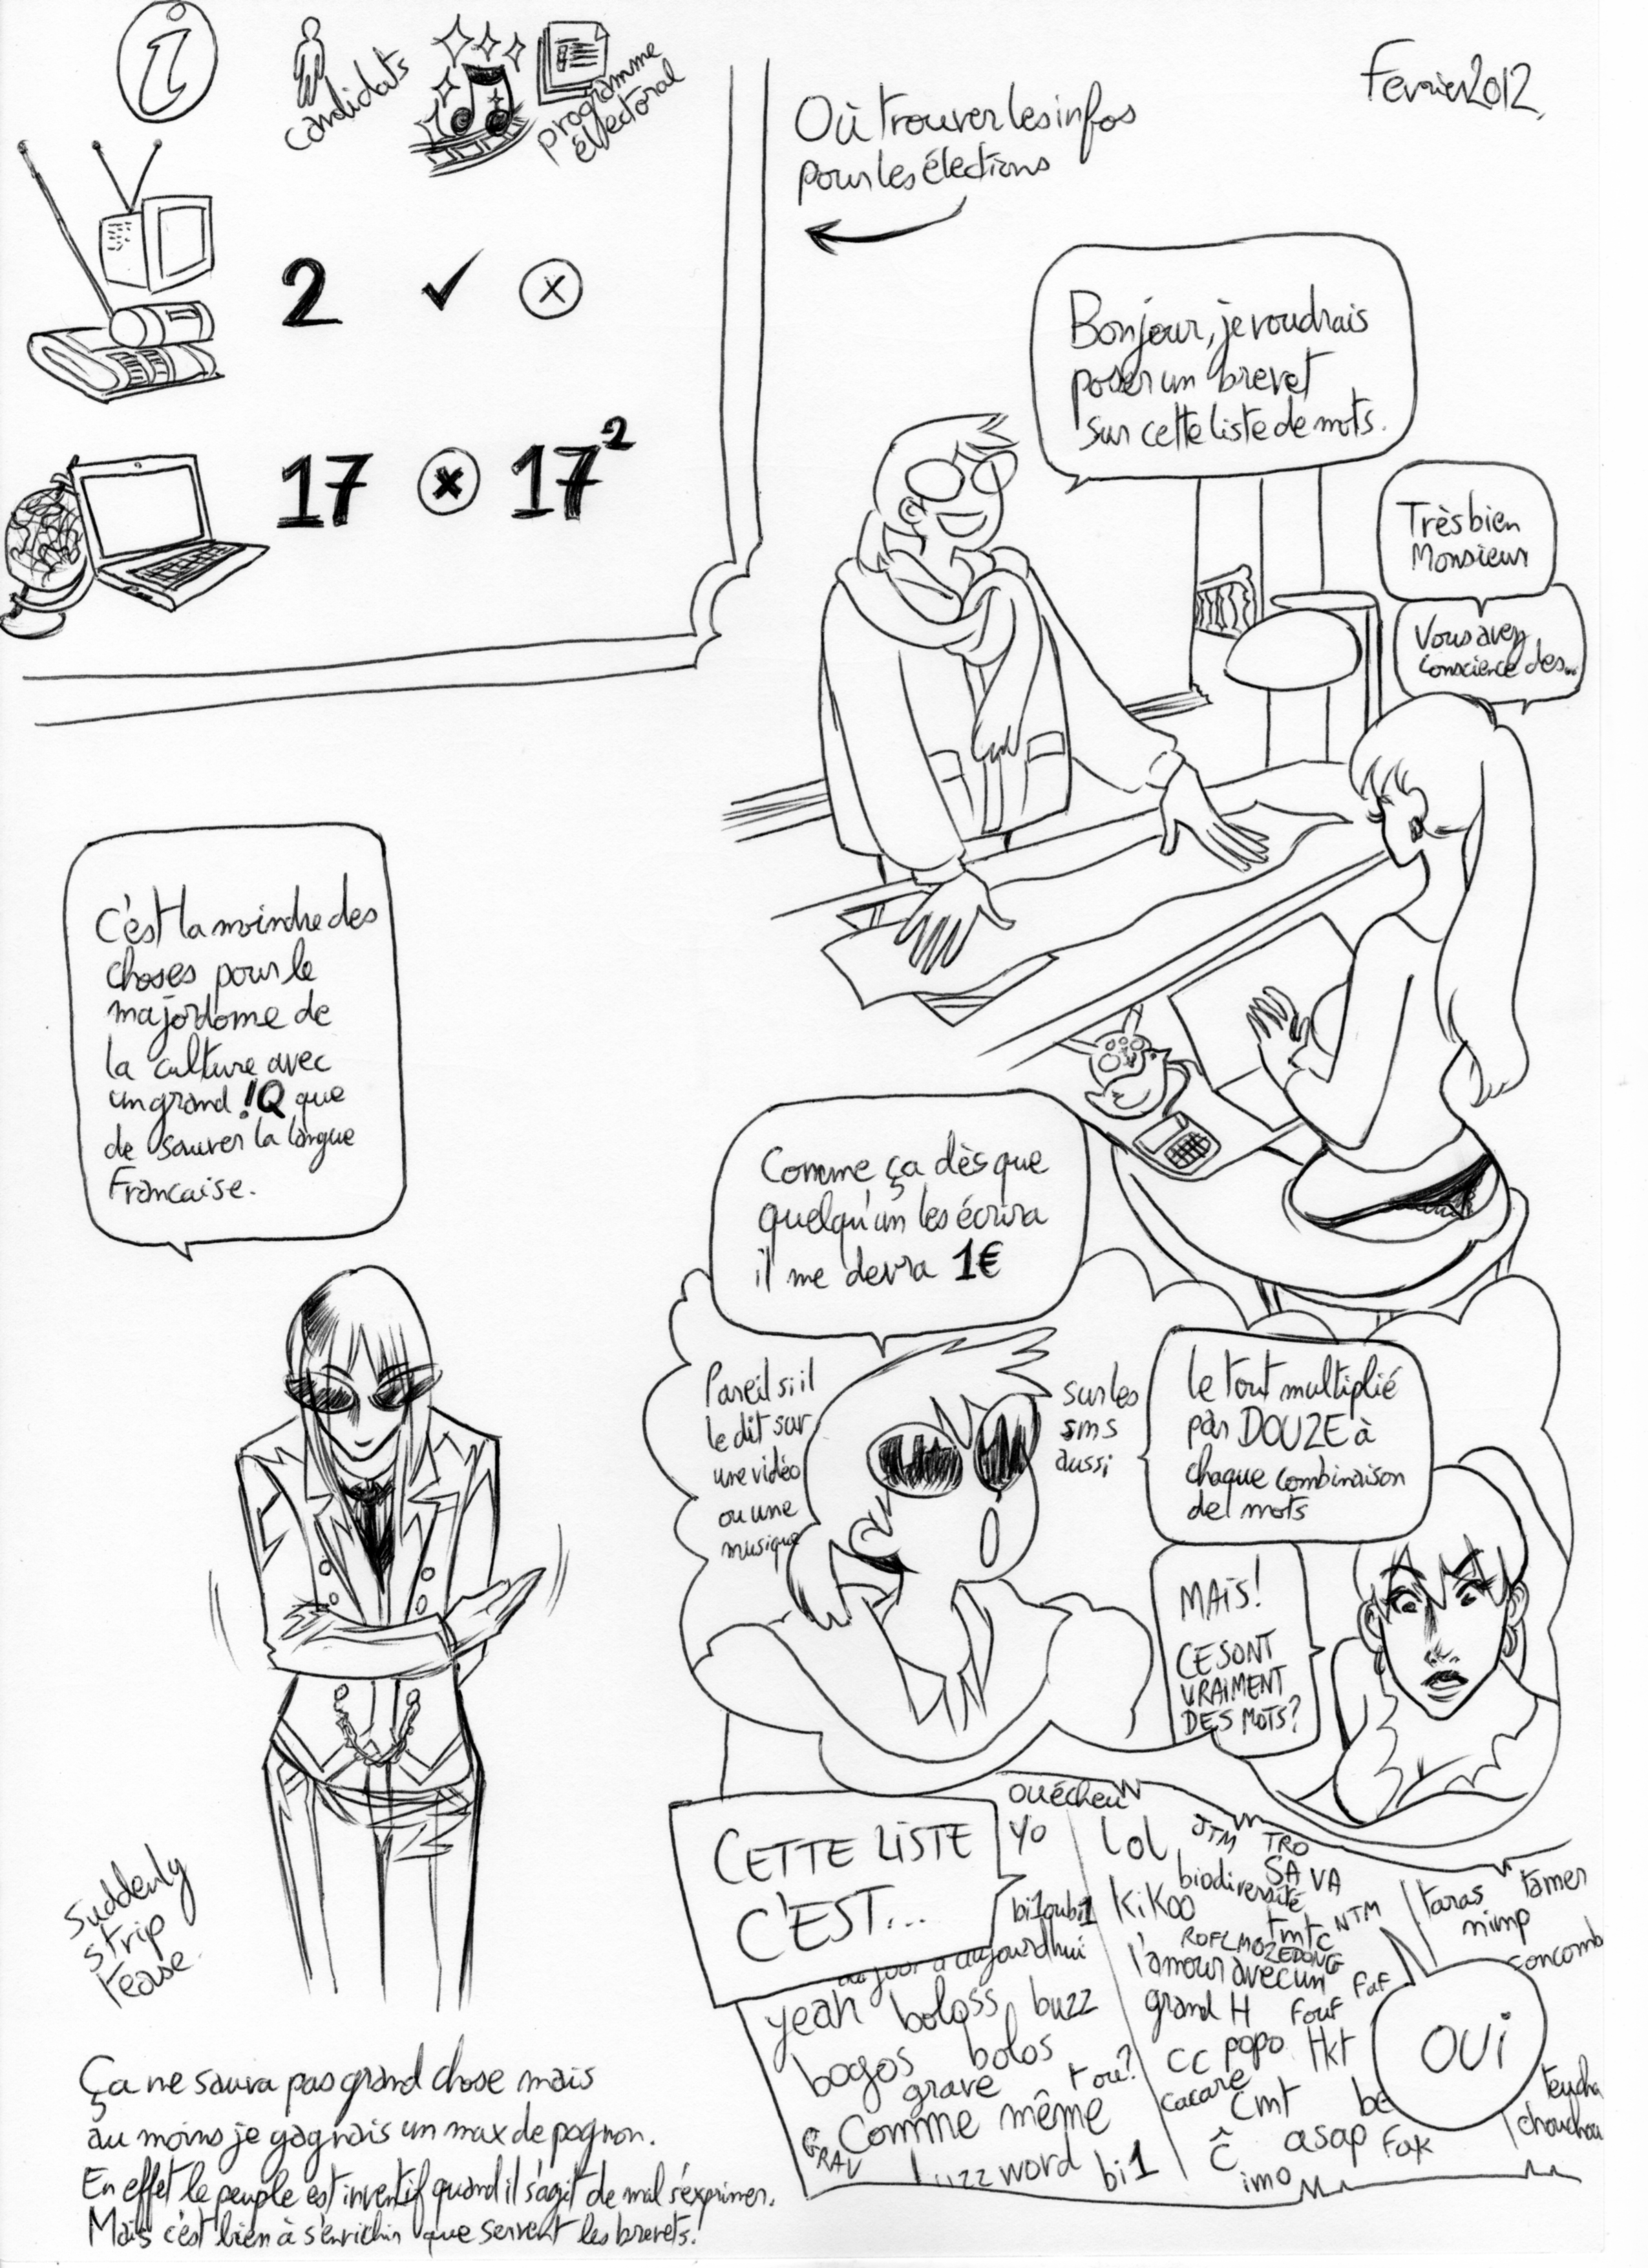 Fevrier2012
i
candidats
programme
électoral
Où trouver les infos
pour les élections
2
17
17²
Bonjour, je voudrais
poser un brevet
sur cette liste de mots.
Très bien
Monsieur
Vous avez
conscience des...
C'est la moindre des
choses pour le
majordome de
la culture avec
un grand !Q que
de sauver la langue
Francaise.
Comme ça dès que
quelqu'un les écrira
il me devra 1€
Pareil si il
le dit sur
une vidéo
ou une
musique
sur les
sms
aussi
le tout multiplié
par DOUZE à
chaque combinaison
de mots
MAIS!
CE SONT
VRAIMENT
DES MOTS?
CETTE LISTE
C'EST...
ouécheu
yo
bi1oubi1
au jour d'aujourdhui
yeah boloss buzz
bogos bolos
grave t où?
GRAV Comme même
buzz word bi1
lol JTM TRO
SA VA
biodiversité
KiKoo
tmtc NTM
ROFLMOZEDONG
l'amour avec un
grand H
Fouf FaF
cc popo tkt
cacare
cmt be
ĉ asap Fak
imo
taras tamer
nimp
concomb
teucha
chouchou
OUi
suddenly
strip
tease.
Ça ne sauva pas grand chose mais
au moins je gagnais un max de pognon.
En effet le peuple est inventif quand il s'agit de mal s'exprimer.
Mais c'est bien à s'enrichir que servent les brevets.